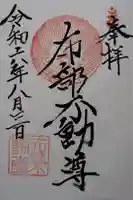 奉拝
布部不動尊
令和六年八月三日